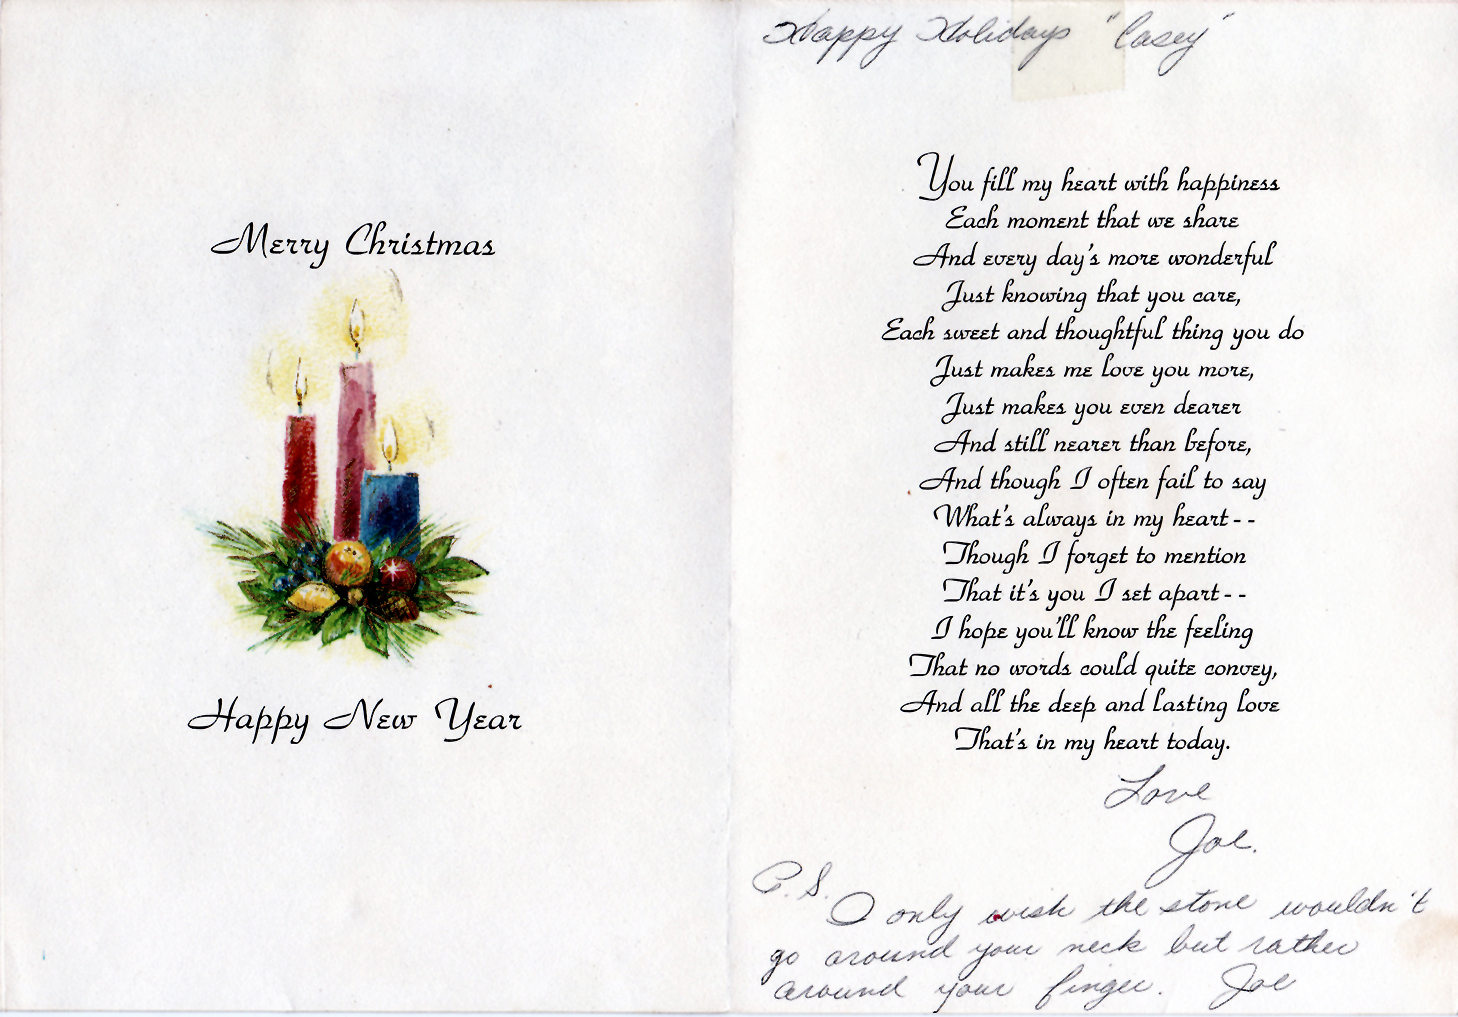 Merry Christmas
Happy New Year
Happy Holidays "Casey"
You fill my heart with happiness
Each moment that we share
And every day's more wonderful
Just knowing that you care,
Each sweet and thoughtful thing you do
Just makes me love you more,
Just makes you even dearer
And still nearer than before,
And though I often fail to say
What's always in my heart--
Though I forget to mention
That it's you I set apart--
I hope you'll know the feeling
That no words could quite convey,
And all the deep and lasting love
That's in my heart today.
Love
Joe.
P.S.
I only wish the stone wouldn't
go around your neck but rather
around your finger. Joe